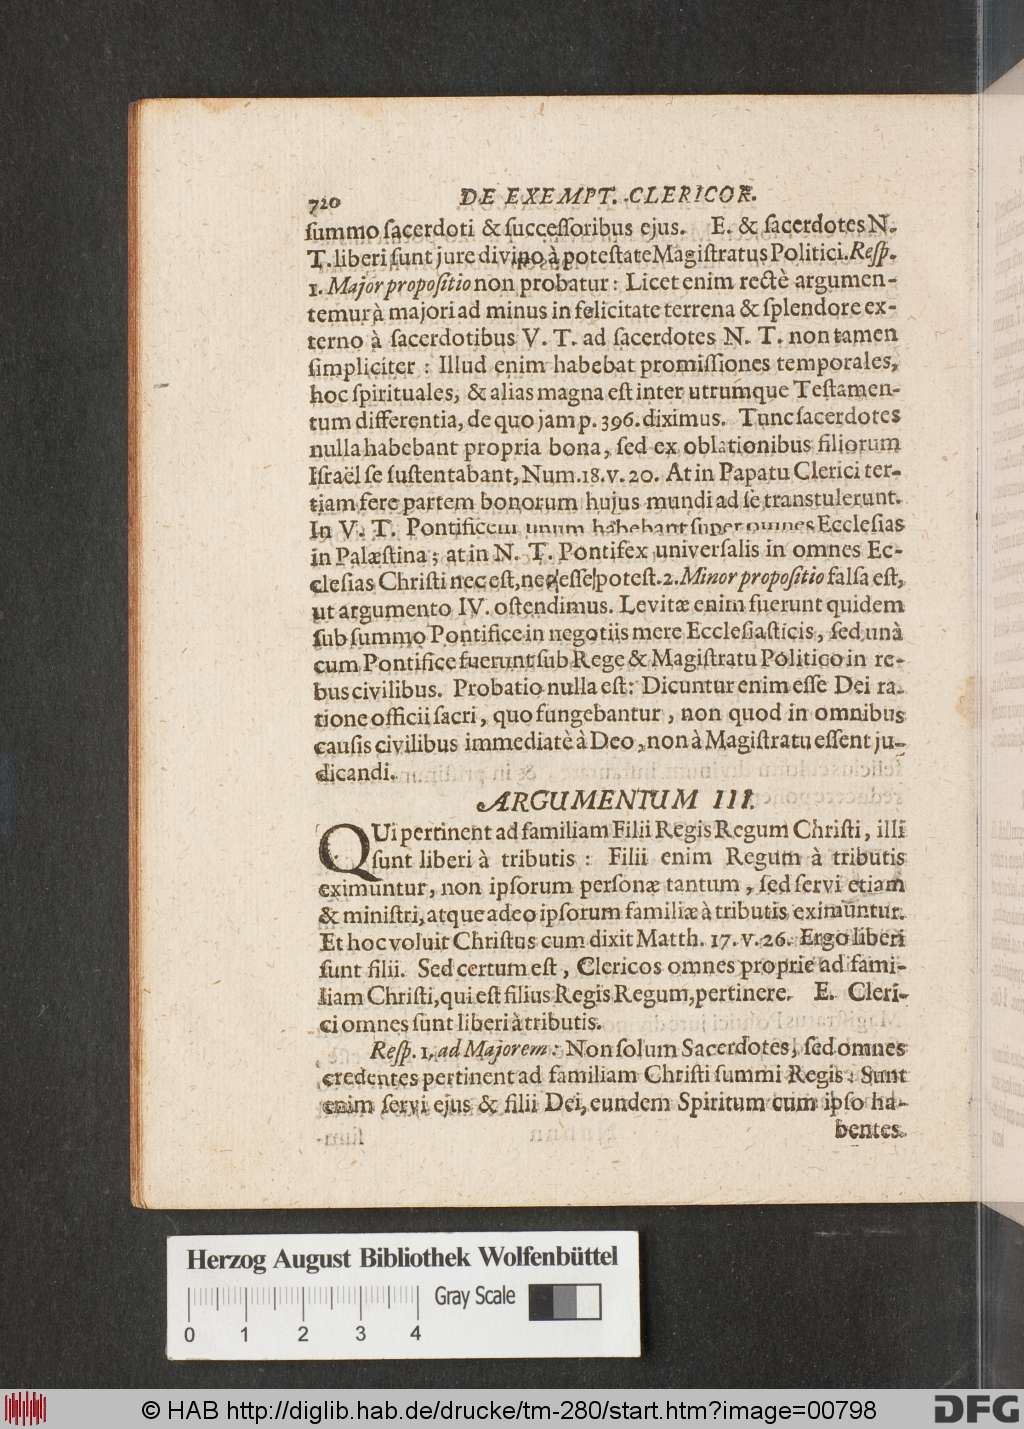 720 DE EXEMPT. CLERICOR.
ſummo ſacerdoti & ſucceſſoribus ejus. E. & ſacerdotes N.
T. liberi ſunt jure divino à poteſtate Magiſtratus Politici. Reſp.
1. Major propoſitio non probatur: Licet enim rectè argumen-
temur à majori ad minus in felicitate terrena & ſplendore ex-
terno à ſacerdotibus V. T. ad ſacerdotes N. T. non tamen
ſimpliciter: Illud enim habebat promiſſiones temporales,
hoc ſpirituales, & alias magna eſt inter utrumque Teſtamen-
tum differentia, de quo jam p. 396. diximus. Tunc ſacerdotes
nulla habebant propria bona, ſed ex oblationibus filiorum
Iſraël ſe ſuſtentabant, Num. 18. v. 20. At in Papatu Clerici ter-
tiam fere partem bonorum hujus mundi ad ſe transtulerunt.
In V. T. Pontificem unum habebant ſuper omnes Eccleſias
in Palæſtina; at in N. T. Pontifex univerſalis in omnes Ec-
cleſias Chriſti nec eſt, nec eſſe poteſt. 2. Minor propoſitio falſa eſt,
ut argumento IV. oſtendimus. Levitæ enim fuerunt quidem
ſub ſummo Pontifice in negotiis mere Eccleſiaſticis, ſed unà
cum Pontifice fuerunt ſub Rege & Magiſtratu Politico in re-
bus civilibus. Probatio nulla eſt: Dicuntur enim eſſe Dei ra-
tione officii ſacri, quo fungebantur, non quod in omnibus
cauſis civilibus immediatè à Deo, non à Magiſtratu eſſent ju-
dicandi.
ARGUMENTUM III.
QUi pertinent ad familiam Filii Regis Regum Chriſti, illi
ſunt liberi à tributis: Filii enim Regum à tributis
eximuntur, non ipſorum perſonæ tantum, ſed ſervi etiam
& miniſtri, atque adeo ipſorum familiæ à tributis eximuntur.
Et hoc voluit Chriſtus cum dixit Matth. 17. v. 26. Ergo liberi
ſunt filii. Sed certum eſt, Clericos omnes proprie ad fami-
liam Chriſti, qui eſt filius Regis Regum, pertinere. E. Cleri-
ci omnes ſunt liberi à tributis.
Reſp. 1. ad Majorem: Non ſolum Sacerdotes, ſed omnes
credentes pertinent ad familiam Chriſti ſummi Regis: Sunt
enim ſervi ejus & filii Dei, eundem Spiritum cum ipſo ha-
bentes.
Herzog August Bibliothek Wolfenbüttel
Gray Scale
0 1 2 3 4
© HAB http://diglib.hab.de/drucke/tm-280/start.htm?image=00798
DFG